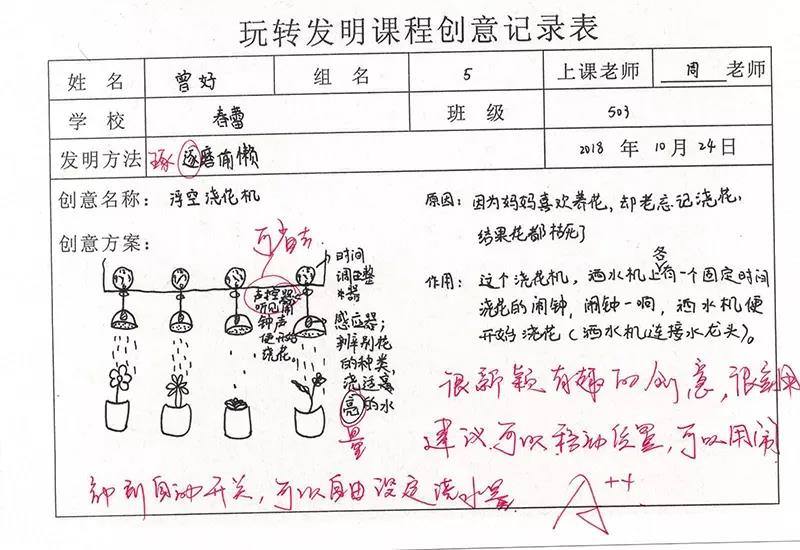 玩转发明课程创意记录表
姓 名 曾好 组 名 5 上课老师 周 老师
学 校 春蕾 班 级 503
发明方法 琢 逐磨偷懒 2018 年 10 月 24 日
创意名称：浮空浇花机
创意方案：
可省去
时间
调正整
器
声控器
听见闹
钟声
便开始
浇花。
感应器；
辨别花
的种类，
浇适当
亮的水
量
原因：因为妈妈喜欢养花，却老忘记浇花，
结果花都枯死了
各
作用：这个浇花机，洒水机上有一个固定时间
浇花的闹钟，闹钟一响，洒水机便
开始浇花（洒水机连接水龙头）。
很新颖有趣的创意，很实用
建议可以移动位置，可以用闹
钟到自动开关，可以自由设定浇水量
A++